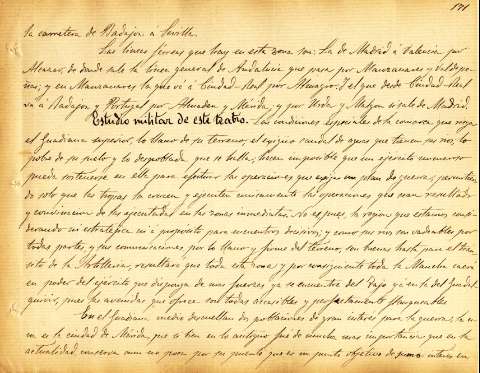 171
la carretera de Badajoz á Sevilla.
Las líneas férreas que hay en esta zona son: La de Madrid á Valencia por
Alcazar, de donde sale la línea general de Andalucía que pasa por Manzanares y Valdepe-
ñas; y en Manzanares la que vá á Ciudad-Real por Almagro; I el que desde Ciudad-Real
vá á Badajoz y Portugal por Almaden y Mérida, y por Malagon sale de Madrid.
Estudio militar de este teatro. Las condiciones especiales de la comarca que riega
el Guadiana superior, lo llano de su terreno, el exiguo caudal de aguas que tienen sus rios, lo
pobre de su suelo y lo despoblada que se halla, hacen imposible que un ejercito numeroso
pueda sostenerse en ella para efectuar las operaciones que exige un plan de guerra, permitien-
do solo que las tropas la crucen y ejecuten unicamente las operaciones que sean resultado
y de las ejecutadas en las zonas inmediatas. No es pues, la region que estamos consi-
derando ni estratégica ni á propósito para encuentros decisivos, y como sus rios son vadeables por
todas partes, y sus comunicaciones por lo llano y firme del terreno, son buenas hasta para el tran-
sito de la Artillería, resultará que toda esta zona y por consiguiente toda la Mancha caerá
en poder del ejército que disponga de mas fuerzas ya se encuentre del Tajo ya en la del Guadal-
quivir, pues las avenidas que ofrece son todas accesibles y perfectamente franqueables.
En el Guadiana medio descuellan dos poblaciones de gran interés para la guerra; la u-
na es la ciudad de Mérida, que si bien en lo antiguo fué de mucha mas importancia que en la
actualidad, conserva aun un paso por su puente que es un punto objetivo de sumo interés en